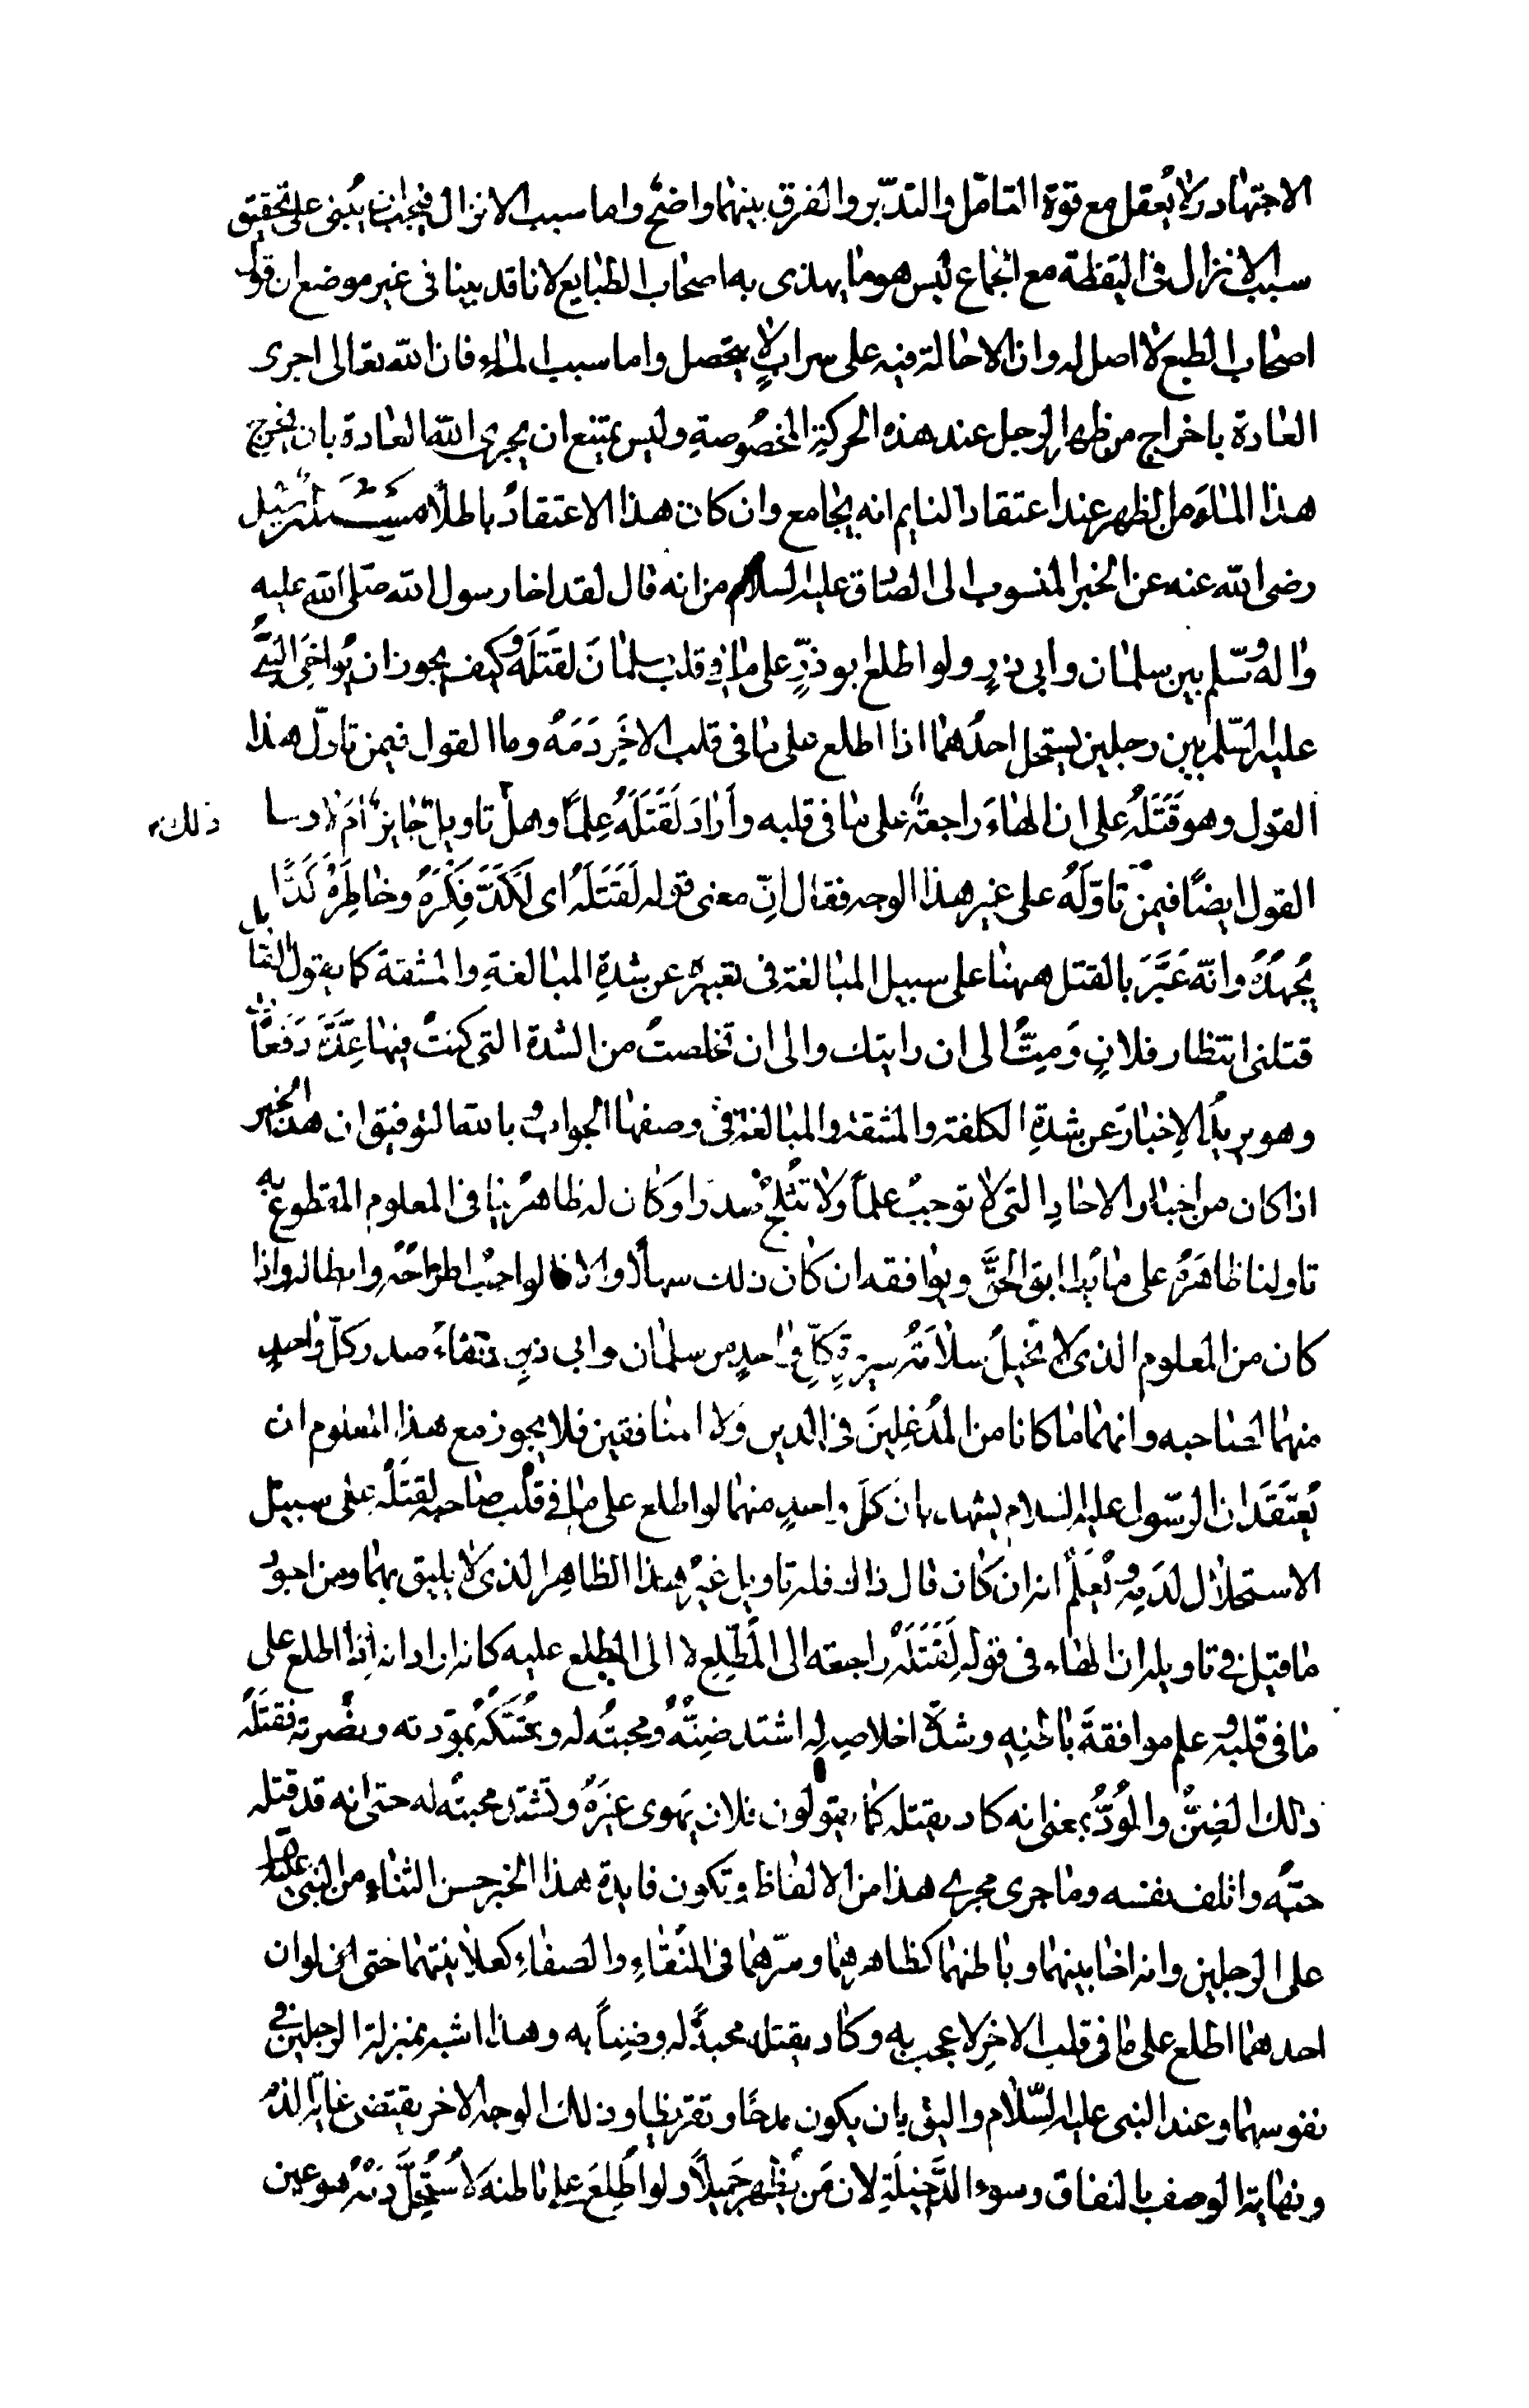 الاجتهاد ولا يُعقل مع قوة التامّل والتدبّر والفرق بينهما واضحٌ واما سبب الانزال فيجب ان يُبنى على تحقيق
سبب الانزال فى اليقظة مع الجماع ليس هو ما يهذى به اصحاب الطبايع لانا قد بينا فى غير موضع ان قول
اصحاب الطبع لا اصل له وان الاحالة فيه على سرابٍ لا يتحصل واما سبب الماء فان الله تعالى اجرى
العادة باخراج من ظهر الرجل عند هذه الحركة المخصُوصةِ وليس يمتنع ان يجرى الله العادة بان يخرج
هذا الماءَ من الظهر عند اعتقاد النايم انه يجامع وان كان هذا الاعتقادُ باطلًا مسئلة سُئل
رضى الله عنه عن الخبر المنسوب الى الصادق عليه السلام من انه قال لقد اخا رسول الله صلى الله عليه
واله وسلّم بين سلمان وابى ذرٍ ولو اطلع ابو ذرٍّ على ما فى قلب سلمانَ لقَتَلَهُ وكيف يجوز ان يُواخىَ النبىُّ
عليه السلم بين رجلين يستحل احدُهما اذا اطلع على ما فى قلب الاخَرِ دَمَهُ وما القول فيمن تاوّل هذا
القول وهو قَتَلَهُ على ان الهاءَ راجعةٌ على ما فى قلبه وأرادَ لَقَتَلَهُ عِلمًا وهل تاويل ذلك جايزٌ ام لا وما
القول ايضًا فيمَنْ تاوّلَهُ على غير هذا الوجه فقال انّ معنى قوله لَقَتَلَهُ اى لَكَدَّ فِكْرَهُ وخاطِرَهُ كَدًّا
يُجهدُهُ وانّه عَبَّرَ بالقتل ههنا على سبيل المبالغة فى تعبيره عن شدةِ المبالغةِ والمشقة كما يقول القايل
قتلنى انتظار فلانٍ ومِتُّ الى ان رايتك والى ان تخلصتُ من الشدة التى كنتُ فيها عِدَّةَ دَفَعَاتٍ
وهو يريدُ الاِخبارَ عن شدةِ الكلفة والمشقة والمبالغة فى وصفها الجواب وبالله التوفيق ان هذا الخبر
اذا كان من اخبار الاحادِ التى لا توجبُ علمًا ولا تُثلجُ صدرًا وكان له ظاهرٌ ينافى المعلوم المقطوع به
تاولنا ظاهرَهُ على ما يُطابق الحقَّ ويوافقه ان كان ذلك سهلًا والا فالواجبُ اطراحُهُ وابطاله واذا
كان من المعلوم الذى لا يُخيلُ سلامةُ سريرةِ كلّ واحدٍ من سلمان وابى ذرٍ ونقاءُ صدر كلّ واحدٍ
منهما لصاحبه وانهما ما كانا من المُدغِلِينَ فى الدين ولا المنافقين فلا يجوز مع هذا المعلوم ان
يُعتَقَدَ ان الرسول عليه السلام يشهد بان كلَ واحدٍ منهما لو اطلع على ما فى قلب صاحبه لقَتَلَهُ على سبيل
الاستحلال لدَمِهِ ونُعِلمُ انه ان كان قال ذلك فله تاويل غيرُ هذا الظاهِر الذى لا يليق بهما ومن اجود
ما قيل فى تاويله ان الهاء فى قوله لقَتَلَهُ راجعة الى المُطّلِعِ لا الى المطلع عليه كانه اراد انه اذا اطلع على
ما فى قلبه وعلم موافقةَ باطنِهِ وشدّة اخلاصِهِ له اشتد ضِنُّهُ ومحبتُه له وتمسّكُهُ بمودّته ونصرته فقتَلَهُ
ذلك الضِنُّ والوُدُّ بمعنى انه كاد يقتله كما يقولون فلان يهوى غيرَهُ وتشتد محبتُه له حتى انه قد قتله
حبُّه واتلف نفسه وما جرى مجرى هذا من الالفاظ وتكون فايدة هذا الخبر حسن الثناءِ من النبى عليه السلام
على الرجلين وانه اخا بينهما وباطنهما كظاهرهما وسرّهما فى النقاءِ والصفاءِ كعلانيتهما حتى انه لو ان
احدهما اطلع على ما فى قلب الاخِر لاعجب به وكاد يقتله محبةً له وضِنًّا به وهذا اشبه بمنزلة الرجلين فى
نفوسهما وعند النبى عليه السّلام واليق بان يكون مدحًا وتقريظًا وذلك الوجه الاخر يقتضى غاية الذم
ونهاية الوصف بالنفاق وسوء الدَّخِيلَةِ لان مَن يُظهر جَميلًا ولو اُطّلِعَ على باطنه لاُستُحِلَّ دَمُهُ هو عين